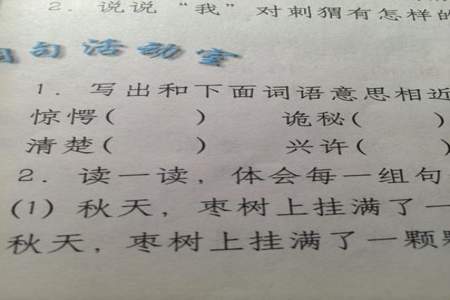 2. 说说“我”对刺猬有怎样的
句活动室
1. 写出和下面词语意思相近
惊愕( ) 诡秘( )
清楚( ) 兴许( )
2. 读一读，体会每一组句
(1) 秋天，枣树上挂满了一
秋天，枣树上挂满了一颗